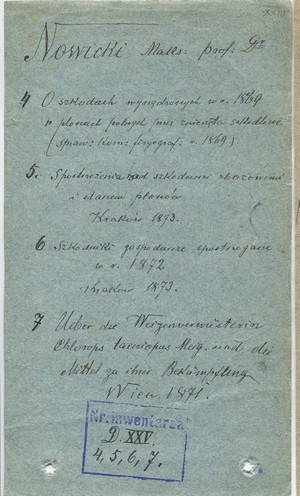 XXIII
Nowicki Maks. prof. Dr
4 O szkodach wyrządzonych w r. 1869
w plonach polnych przez zwierzęta szkodliwe
(spraw: Komis: fizyograf: r. 1869)
5. Spostrzeżenia nad szkodami zbożowemi
i stanem plonów
Kraków 1873.
6 Szkodniki gospodarcze spostrzegane
w r. 1872
Kraków 1873.
7 Ueber die Weizenverwüsterin
Chlorops taeniopus Meig. und die
Mittel zu ihrer Bekämpfung
Wien 1871.
Nr. inwentarza
D. XXV.
4, 5, 6, 7.